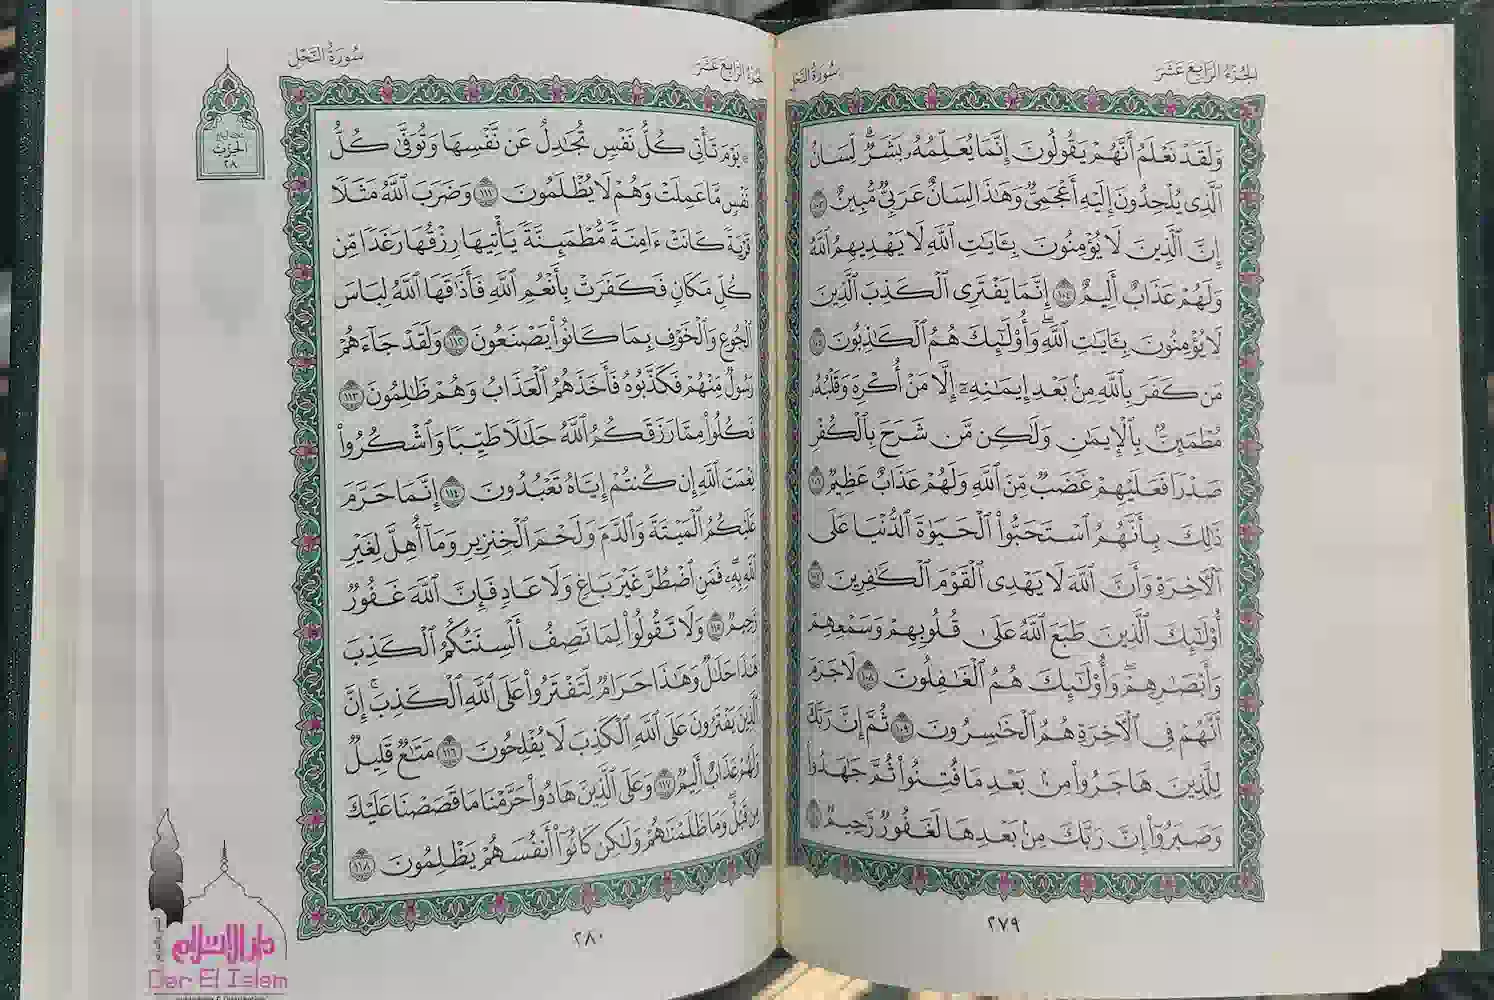 الجزء الرابع عشر
سورة النحل
وَلَقَدْ نَعْلَمُ أَنَّهُمْ يَقُولُونَ إِنَّمَا يُعَلِّمُهُۥ بَشَرٌ ۗ لِّسَانُ
ٱلَّذِى يُلْحِدُونَ إِلَيْهِ أَعْجَمِىٌّ وَهَـٰذَا لِسَانٌ عَرَبِىٌّ مُّبِينٌ ١٠٣
إِنَّ ٱلَّذِينَ لَا يُؤْمِنُونَ بِـَٔايَـٰتِ ٱللَّهِ لَا يَهْدِيهِمُ ٱللَّهُ
وَلَهُمْ عَذَابٌ أَلِيمٌ ١٠٤ إِنَّمَا يَفْتَرِى ٱلْكَذِبَ ٱلَّذِينَ
لَا يُؤْمِنُونَ بِـَٔايَـٰتِ ٱللَّهِ ۖ وَأُو۟لَـٰٓئِكَ هُمُ ٱلْكَـٰذِبُونَ ١٠٥
مَن كَفَرَ بِٱللَّهِ مِنۢ بَعْدِ إِيمَـٰنِهِۦٓ إِلَّا مَنْ أُكْرِهَ وَقَلْبُهُۥ
مُطْمَئِنٌّۢ بِٱلْإِيمَـٰنِ وَلَـٰكِن مَّن شَرَحَ بِٱلْكُفْرِ
صَدْرًا فَعَلَيْهِمْ غَضَبٌ مِّنَ ٱللَّهِ وَلَهُمْ عَذَابٌ عَظِيمٌ ١٠٦
ذَٰلِكَ بِأَنَّهُمُ ٱسْتَحَبُّوا۟ ٱلْحَيَوٰةَ ٱلدُّنْيَا عَلَى
ٱلْـَٔاخِرَةِ وَأَنَّ ٱللَّهَ لَا يَهْدِى ٱلْقَوْمَ ٱلْكَـٰفِرِينَ ١٠٧
أُو۟لَـٰٓئِكَ ٱلَّذِينَ طَبَعَ ٱللَّهُ عَلَىٰ قُلُوبِهِمْ وَسَمْعِهِمْ
وَأَبْصَـٰرِهِمْ ۖ وَأُو۟لَـٰٓئِكَ هُمُ ٱلْغَـٰفِلُونَ ١٠٨ لَا جَرَمَ
أَنَّهُمْ فِى ٱلْـَٔاخِرَةِ هُمُ ٱلْخَـٰسِرُونَ ١٠٩ ثُمَّ إِنَّ رَبَّكَ
لِلَّذِينَ هَاجَرُوا۟ مِنۢ بَعْدِ مَا فُتِنُوا۟ ثُمَّ جَـٰهَدُوا۟
وَصَبَرُوٓا۟ إِنَّ رَبَّكَ مِنۢ بَعْدِهَا لَغَفُورٌ رَّحِيمٌ ١١٠
٢٧٩
الجزء الرابع عشر
سورة النحل
۞ يَوْمَ تَأْتِى كُلُّ نَفْسٍ تُجَـٰدِلُ عَن نَّفْسِهَا وَتُوَفَّىٰ كُلُّ
نَفْسٍ مَّا عَمِلَتْ وَهُمْ لَا يُظْلَمُونَ ١١١ وَضَرَبَ ٱللَّهُ مَثَلًا
قَرْيَةً كَانَتْ ءَامِنَةً مُّطْمَئِنَّةً يَأْتِيهَا رِزْقُهَا رَغَدًا مِّن
كُلِّ مَكَانٍ فَكَفَرَتْ بِأَنْعُمِ ٱللَّهِ فَأَذَٰقَهَا ٱللَّهُ لِبَاسَ
ٱلْجُوعِ وَٱلْخَوْفِ بِمَا كَانُوا۟ يَصْنَعُونَ ١١٢ وَلَقَدْ جَآءَهُمْ
رَسُولٌ مِّنْهُمْ فَكَذَّبُوهُ فَأَخَذَهُمُ ٱلْعَذَابُ وَهُمْ ظَـٰلِمُونَ ١١٣
فَكُلُوا۟ مِمَّا رَزَقَكُمُ ٱللَّهُ حَلَـٰلًا طَيِّبًا وَٱشْكُرُوا۟
نِعْمَتَ ٱللَّهِ إِن كُنتُمْ إِيَّاهُ تَعْبُدُونَ ١١٤ إِنَّمَا حَرَّمَ
عَلَيْكُمُ ٱلْمَيْتَةَ وَٱلدَّمَ وَلَحْمَ ٱلْخِنزِيرِ وَمَآ أُهِلَّ لِغَيْرِ
ٱللَّهِ بِهِۦ ۖ فَمَنِ ٱضْطُرَّ غَيْرَ بَاغٍ وَلَا عَادٍ فَإِنَّ ٱللَّهَ غَفُورٌ
رَّحِيمٌ ١١٥ وَلَا تَقُولُوا۟ لِمَا تَصِفُ أَلْسِنَتُكُمُ ٱلْكَذِبَ
هَـٰذَا حَلَـٰلٌ وَهَـٰذَا حَرَامٌ لِّتَفْتَرُوا۟ عَلَى ٱللَّهِ ٱلْكَذِبَ ۚ إِنَّ
ٱلَّذِينَ يَفْتَرُونَ عَلَى ٱللَّهِ ٱلْكَذِبَ لَا يُفْلِحُونَ ١١٦ مَتَـٰعٌ قَلِيلٌ
وَلَهُمْ عَذَابٌ أَلِيمٌ ١١٧ وَعَلَى ٱلَّذِينَ هَادُوا۟ حَرَّمْنَا مَا قَصَصْنَا عَلَيْكَ
مِن قَبْلُ ۖ وَمَا ظَلَمْنَـٰهُمْ وَلَـٰكِن كَانُوٓا۟ أَنفُسَهُمْ يَظْلِمُونَ ١١٨
٢٨٠
الحزب
٢٨
دار الإسلام
Dar El Islam